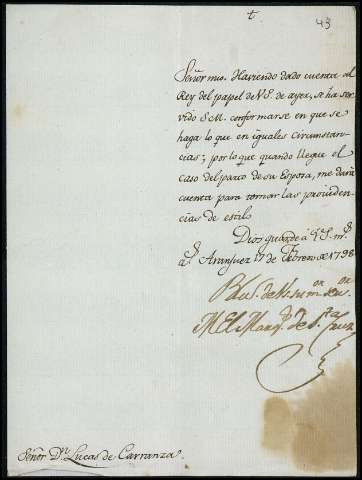 t.
43
Señor mio. Haviendo dado cuenta al
Rey del papel de V.S. de ayer, se ha ser
vido S.M. conformarse en que se
haga lo que en iguales circunstan-
cias; por lo que quando llegue el
caso del parto de su Esposa, me dará
cuenta para tomar las providen-
cias de estilo.
Dios guarde á V.S. m.s
a.s Aranjuez 17 de Febrero de 1798
de V.S. su m.or
El Marq.s de S.ta Cruz
Señor D.n Lucas de Carranza.